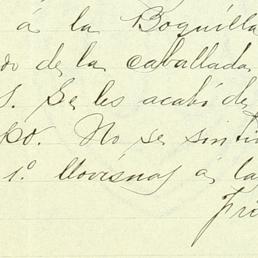 á la Boquilla
do de la caballada
S. Se les acabó de
No se sinti
1º lloviznas á la
Fri